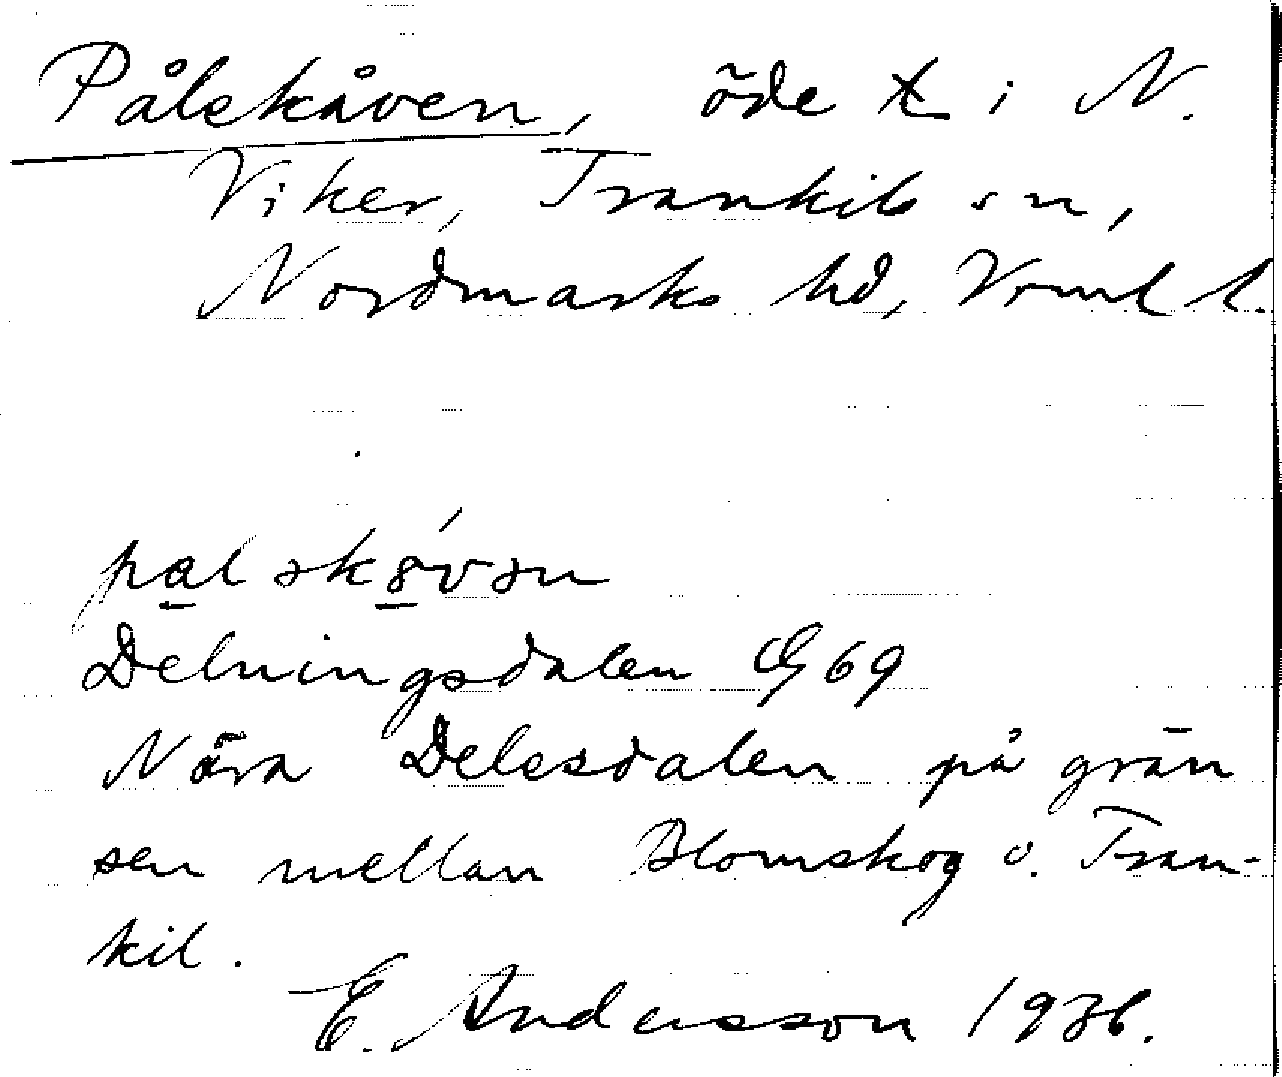 Pålskåven, öde t i N.
Viker, Trankils sn,
Nordmarks hd, Vrml l.
Delningsdalen G 69
Nära Delesdalen på grän
sen mellan Blomskog o. Tran-
kil.
E. Andersson 1936.